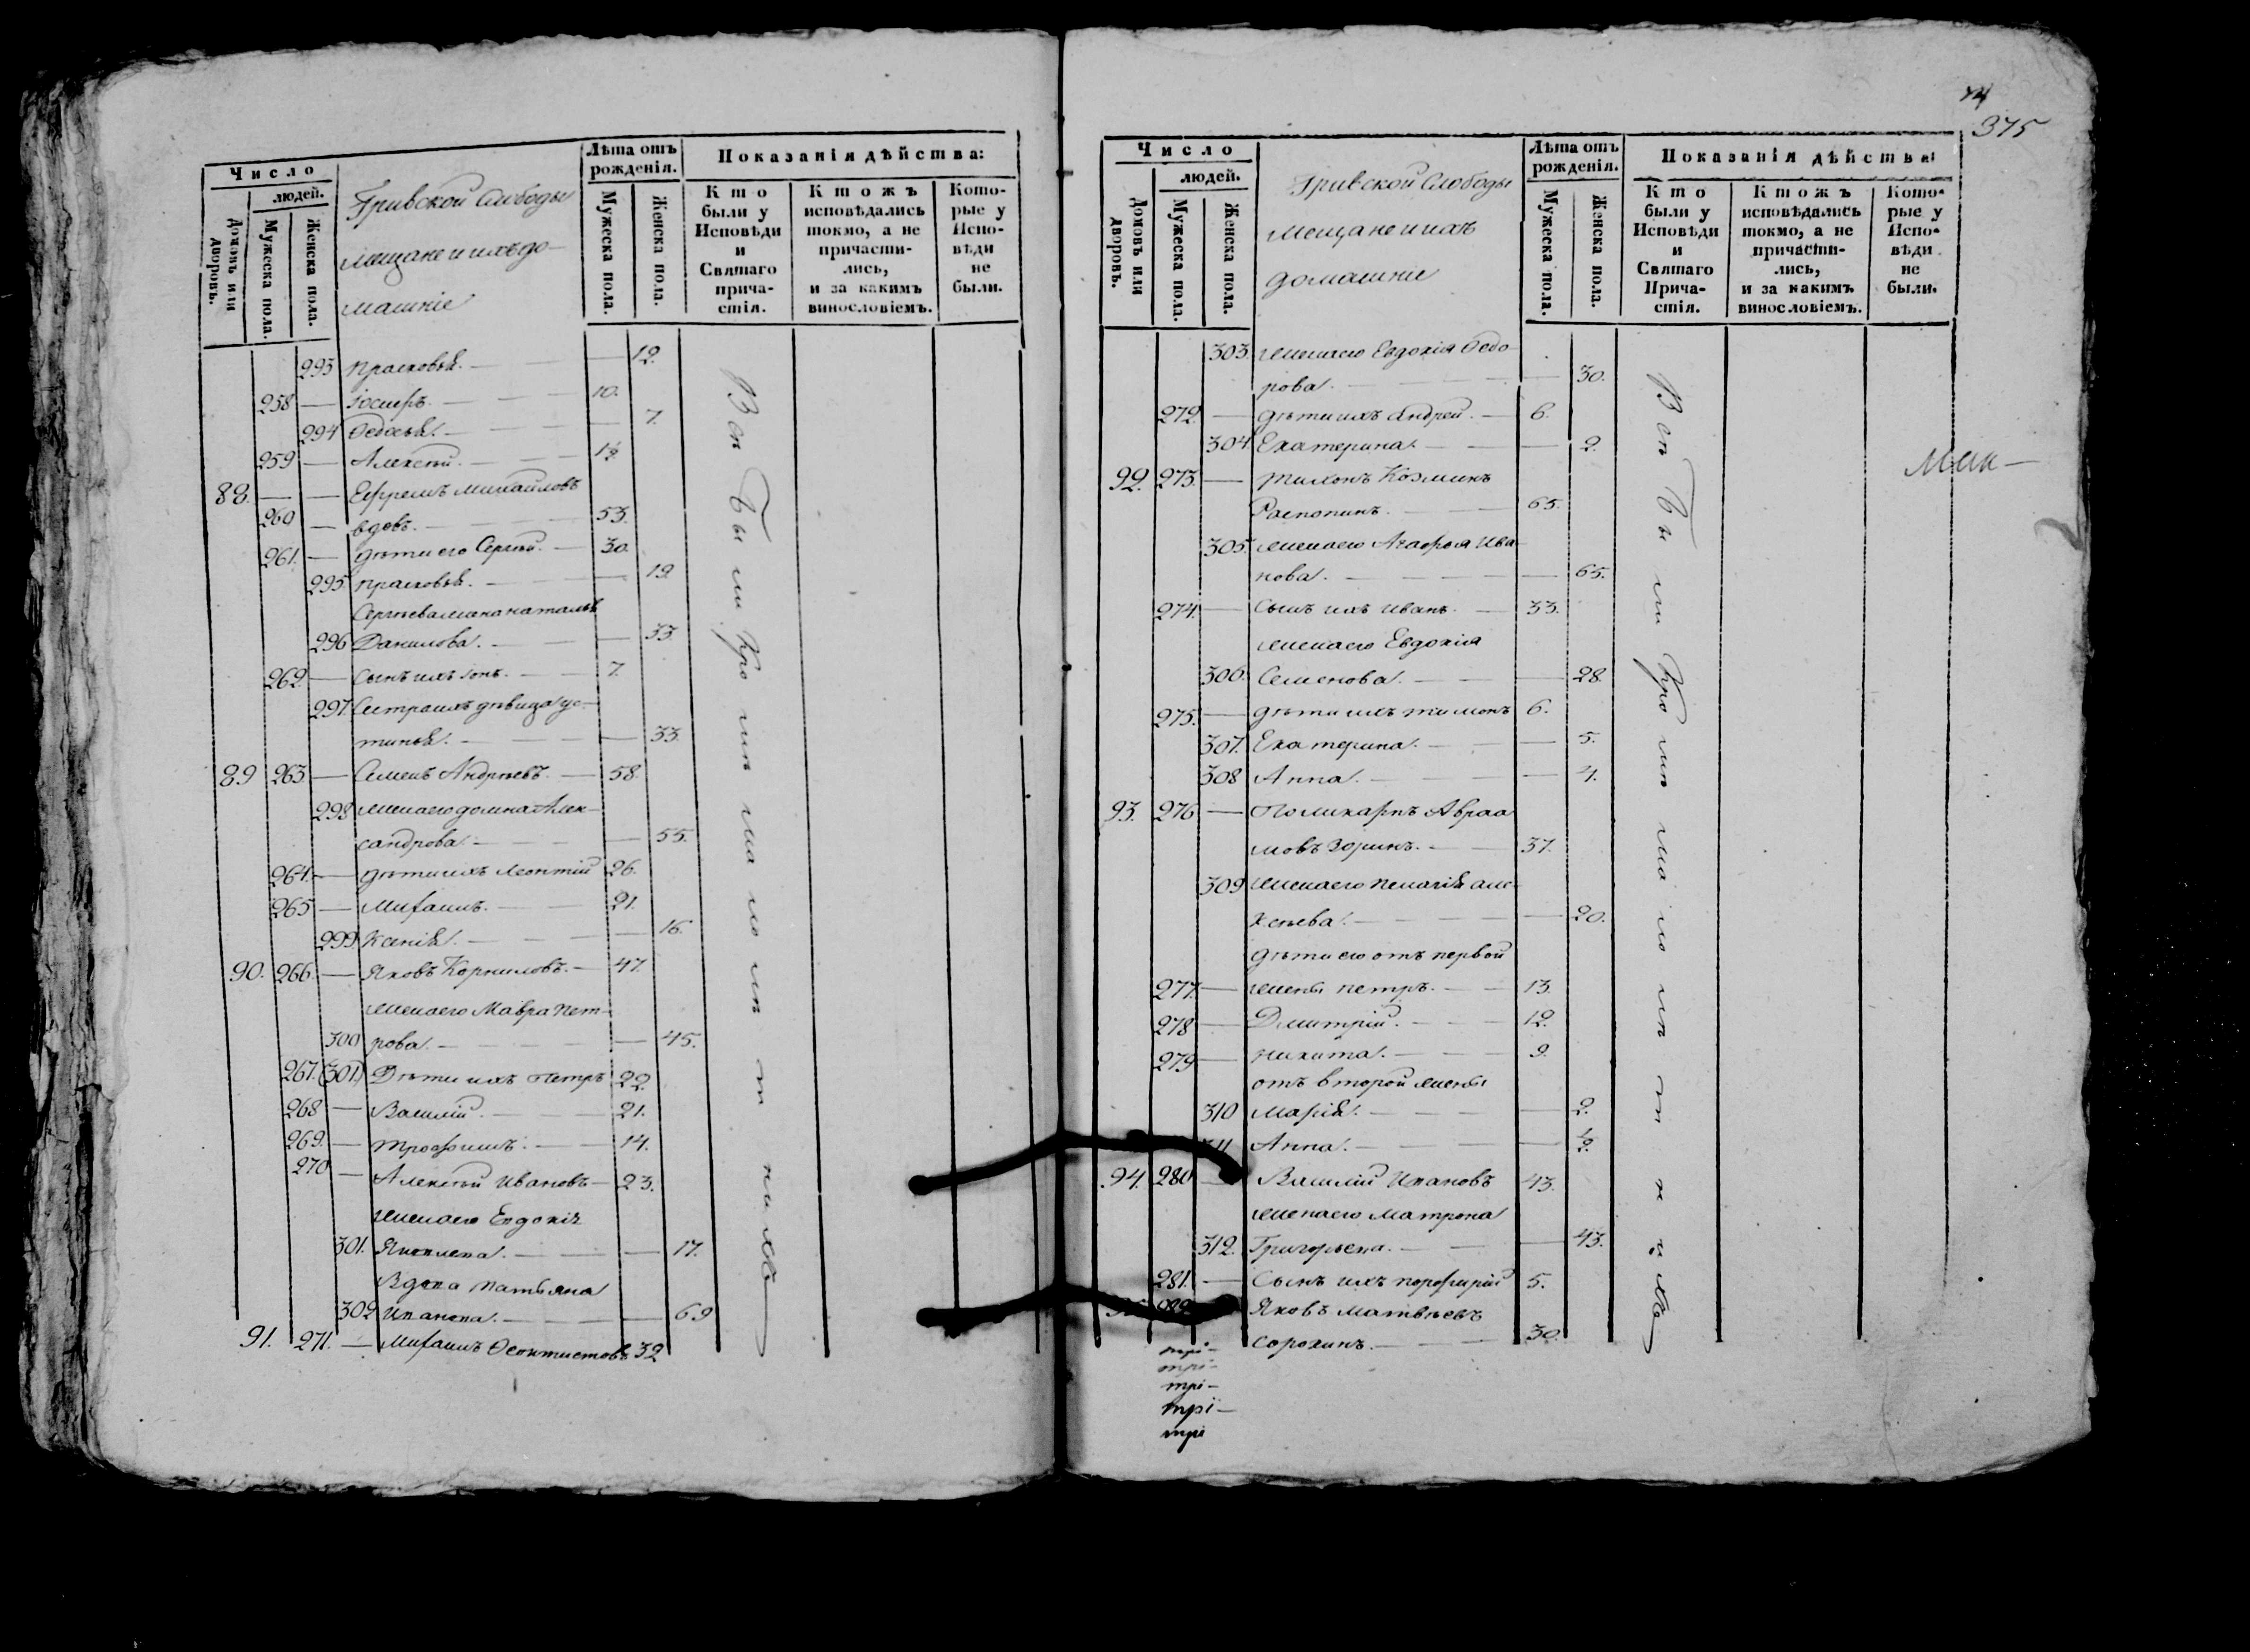 Число
людей.
Домовъ или дворовъ.
Мужеска пола.
Женска пола.
Гривской Слободы
мещане и ихъ до-
машніе
Лѣта отъ рожденія.
Мужеска пола.
Женска пола.
Показанія дѣйства:
Кто были у Исповѣди и Святаго причастія.
Ктожъ исповѣдались токмо, а не причастились, и за какимъ винословіемъ.
Которые у Исповѣди не были.
293 Прасковья. — — 12.
258 — Іосифъ. — 10.
294 Ѳедосья. — — 7.
259 — Алексѣй. — 1½
88. — — Ефремъ Михайловъ
260 — вдовъ. — 53.
261. — Дѣти его Сергѣй. — 30.
295 Прасковья. — — 19.
Сергѣева жена Наталья
296 Данилова. — — 33.
262. — Сынъ ихъ Іонъ. — 7.
297. Сестра ихъ дѣвица Ус-
тинья. — — 33.
89 263. — Семенъ Андрѣевъ. — 58.
298 Жена его Домна Алек-
сандрова. — — 55.
264. — Дѣти ихъ Леонтій 26.
265 — Михаилъ. — 21.
299. Ксенія. — — 16.
90. 266. — Яковъ Корниловъ. — 47.
Жена его Мавра Пет-
300 рова. — — 45.
267. (301.) Дѣти ихъ Петръ 22.
268 — Василій. — 21.
269. — Трофимъ. — 14.
270 — Алексѣй Ивановъ — 23.
Жена его Евдокія
301. Яковлева. — — 17.
Вдова Татьяна
302 Иванова. — — 69
91. 271. — Михаилъ Ѳеоктистовъ 32
Всѣ были про
375
Число
людей.
Домовъ или дворовъ.
Мужеска пола.
Женска пола.
Гривской Слободы
мещане и ихъ
домашніе
Лѣта отъ рожденія.
Мужеска пола.
Женска пола.
Показанія дѣйства:
Кто были у Исповѣди и Святаго Причастія.
Ктожъ исповѣдались токмо, а не причастились, и за какимъ винословіемъ.
Которые у Исповѣди не были.
303. Жена его Евдокія Ѳедо-
рова. — — 30.
272. — Дѣти ихъ Андрей. — 6.
304 Екатерина. — — 2.
92. 273. — Тихонъ Козминъ
Распопинъ. — 65.
305. Жена его Агафья Ива-
нова. — — 65.
274. — Сынъ ихъ Иванъ. — 33.
Жена его Евдокія
306. Семенова. — — 28.
275. — Дѣти ихъ Тимонъ 6.
307. Екатерина. — — 5.
308 Анна. — — 4.
93. 276 — Поликарпъ Авраа
мовъ Зоринъ. — 37.
309 Жена его Пелагія Але-
ксѣева. — — 20.
Дѣти его отъ первой
277. — жены Петръ. — 13.
278 — Дмитрій. — 12.
279 — Никита. — 9.
отъ второй жены
310 Марія. — — 2.
311 Анна. — — ½.
94. 280 — Василій Ивановъ 43.
Жена его Матрона
312. Григорьева. — — 43.
281. — Сынъ ихъ Порфирій 5.
Яковъ Матвѣевъ
Сорокинъ. — 30.
Всѣ были про
три-
три-
три-
три-
три